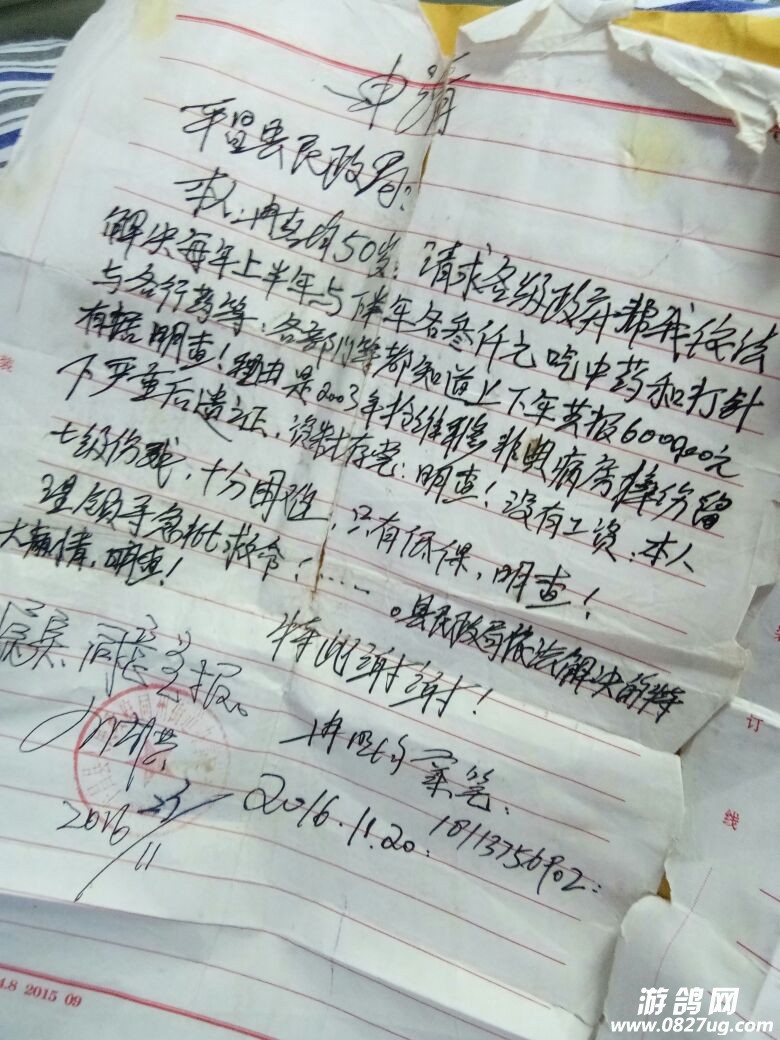 申请
平昌县民政局:
本人:冉 均50岁:请求各级政府帮我依法
解决每年上半年与下半年各叁仟元吃中药和打针
与各行药等、各部门等都知道上下年共报6000.00元
有据明查!理由是2003年抢维 非典病房摔伤留
下严重后遗证,资料存党:明查!没有工资.本人
七级伤残,十分困难,只有低保,明查!
望领导急批救命!……。县民政局依法解决
大 情,明查!
特此谢谢!
冉 均 笔.
2016.11.20:18113756902:
2016 23/11
装
订
线
4.8 2015 09
游鸽网
www.0827ug.com